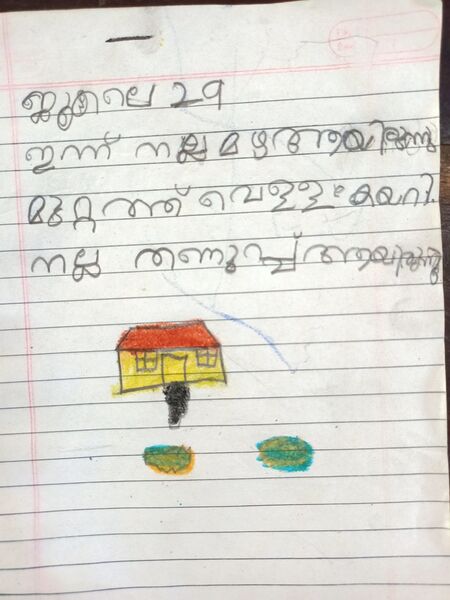 ജൂലൈ 29
ഇന്ന് നല്ല മഴ ആയിരുന്നു
മുറ്റത്ത് വെള്ളം കയറി.
നല്ല തണുപ്പ് ആയിരുന്നു